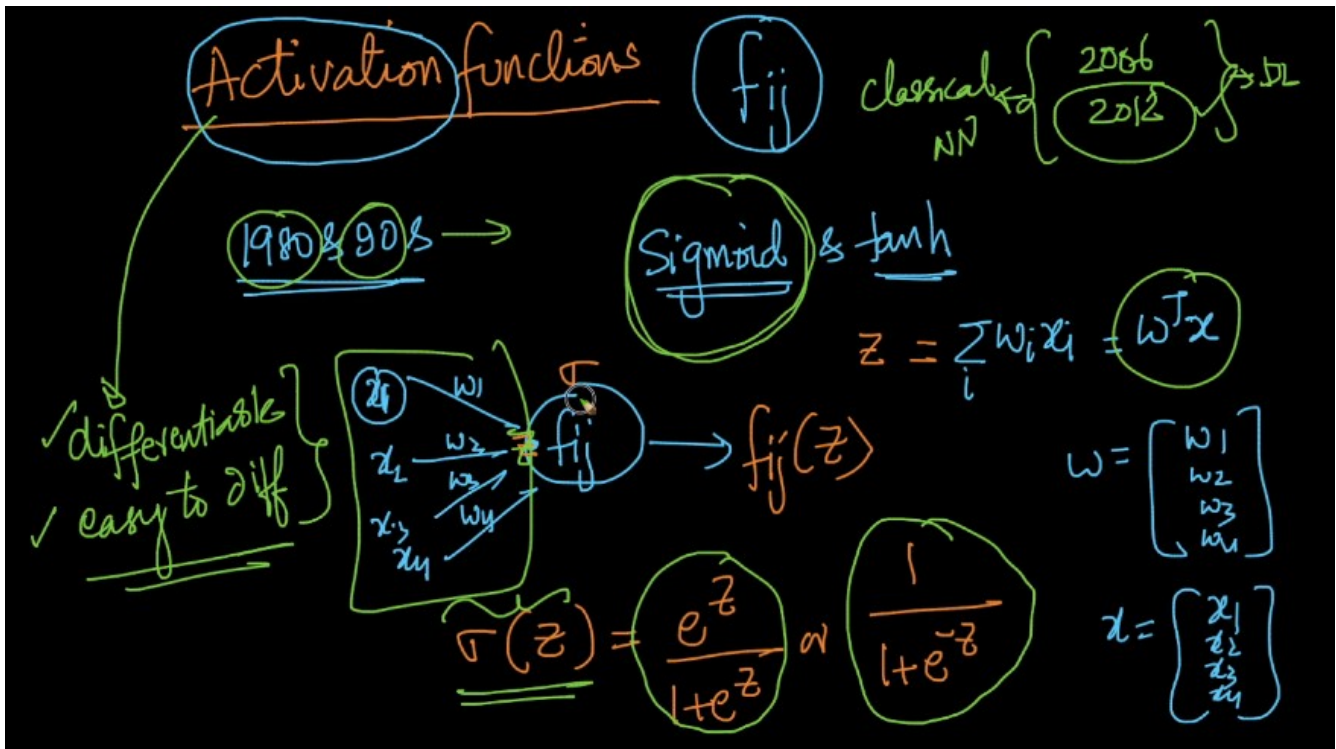 Activation functions
fij
classical NN
2006
2012
DL
1980s 90s → Sigmoid & tanh
z = Σ wixi = wᵀx
i
✓ differentiable
✓ easy to diff
x1 w1
x2 w2
x3 w3
x4 w4
z
σ
fij → fij(z)
w = [w1
w2
w3
w4]
σ(z) = e^z / 1+e^z or 1 / 1+e^-z
x = [x1
x2
x3
x4]